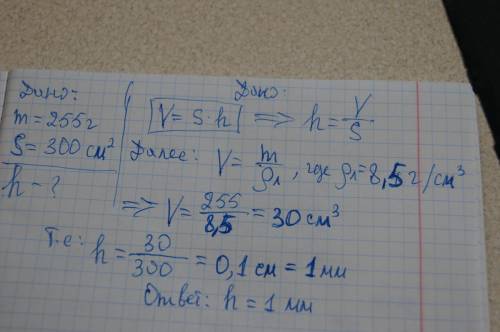 Дано:
m = 255 г
S = 300 см²
h - ?
Дано:
V = S·h => h = V/S
Далее: V = m/ρл, где ρл = 8,5 г/см³
=> V = 255/8,5 = 30 см³
Т.е: h = 30/300 = 0,1 см = 1 мм
Ответ: h = 1 мм